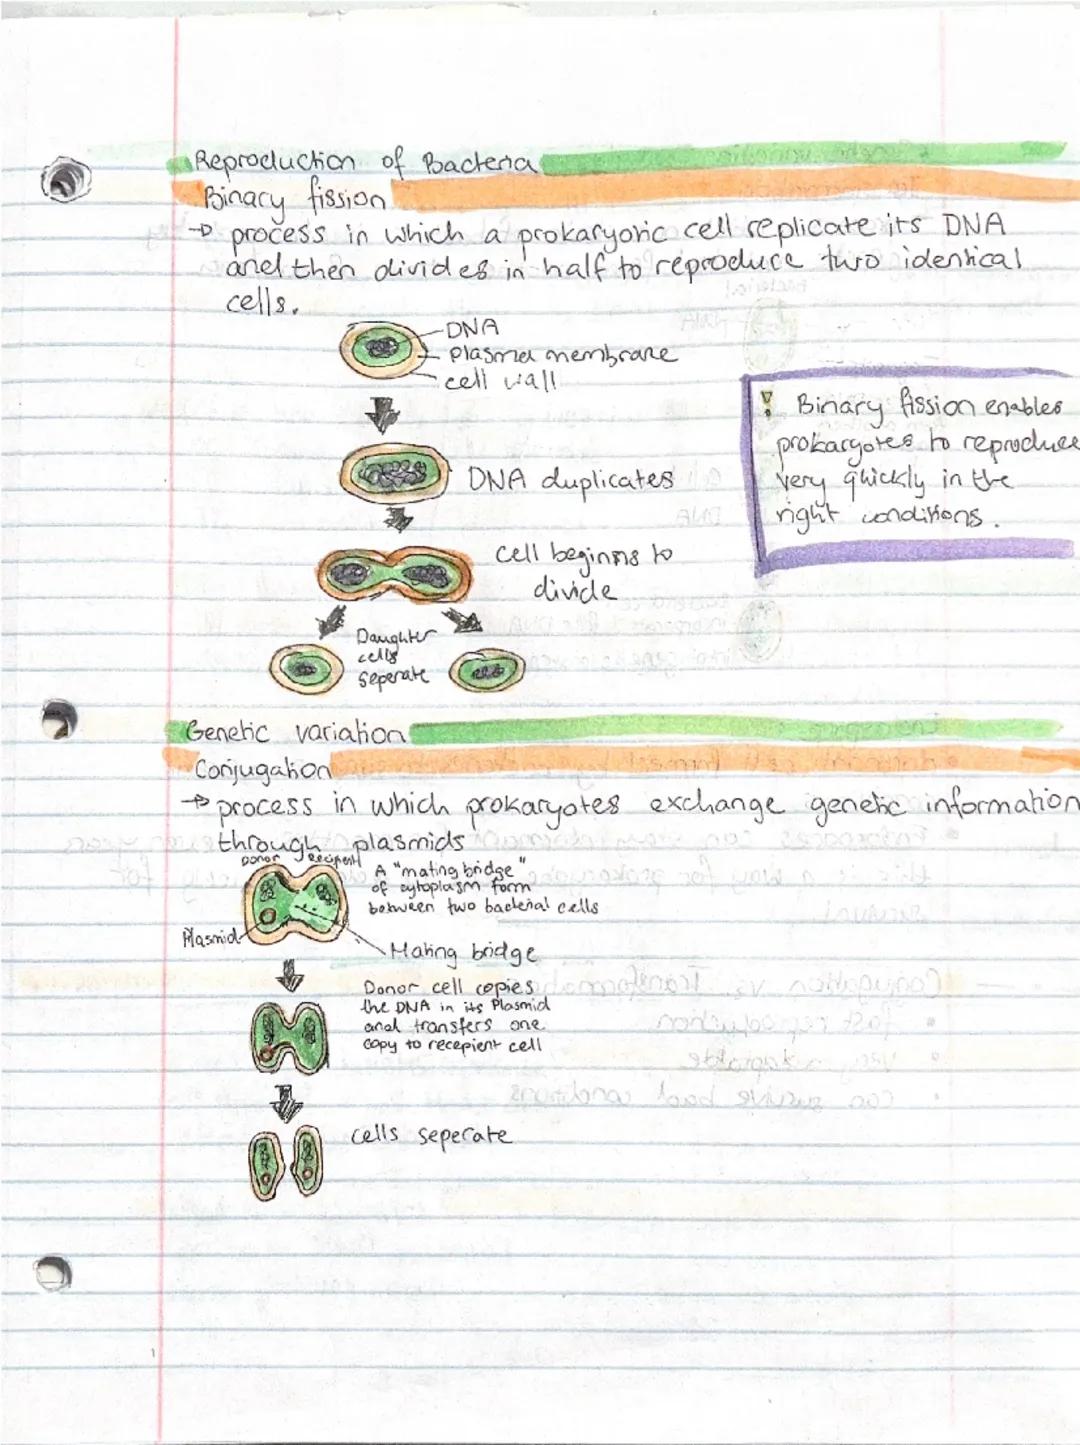 Reproduction of Bacteria
Binary fission
→ process in which a prokaryotic cell replicate its DNA
and then divides in half to reproduce two identical
cells.
DNA
plasma membrane
cell wall
! Binary fission enables
prokaryotes to reproduce
very quickly in the
right conditions.
DNA duplicates
cell beginns to
divide
Daughter
cells
seperate
Genetic variation
Conjugation
→ process in which prokaryotes exchange genetic information
through plasmids
Donor Recipent
A "mating bridge"
of cytoplasm form
between two bacterial cells
Plasmid
Mating bridge
Donor cell copies
the DNA in its Plasmid
and transfers one
copy to recepient cell
cells seperate